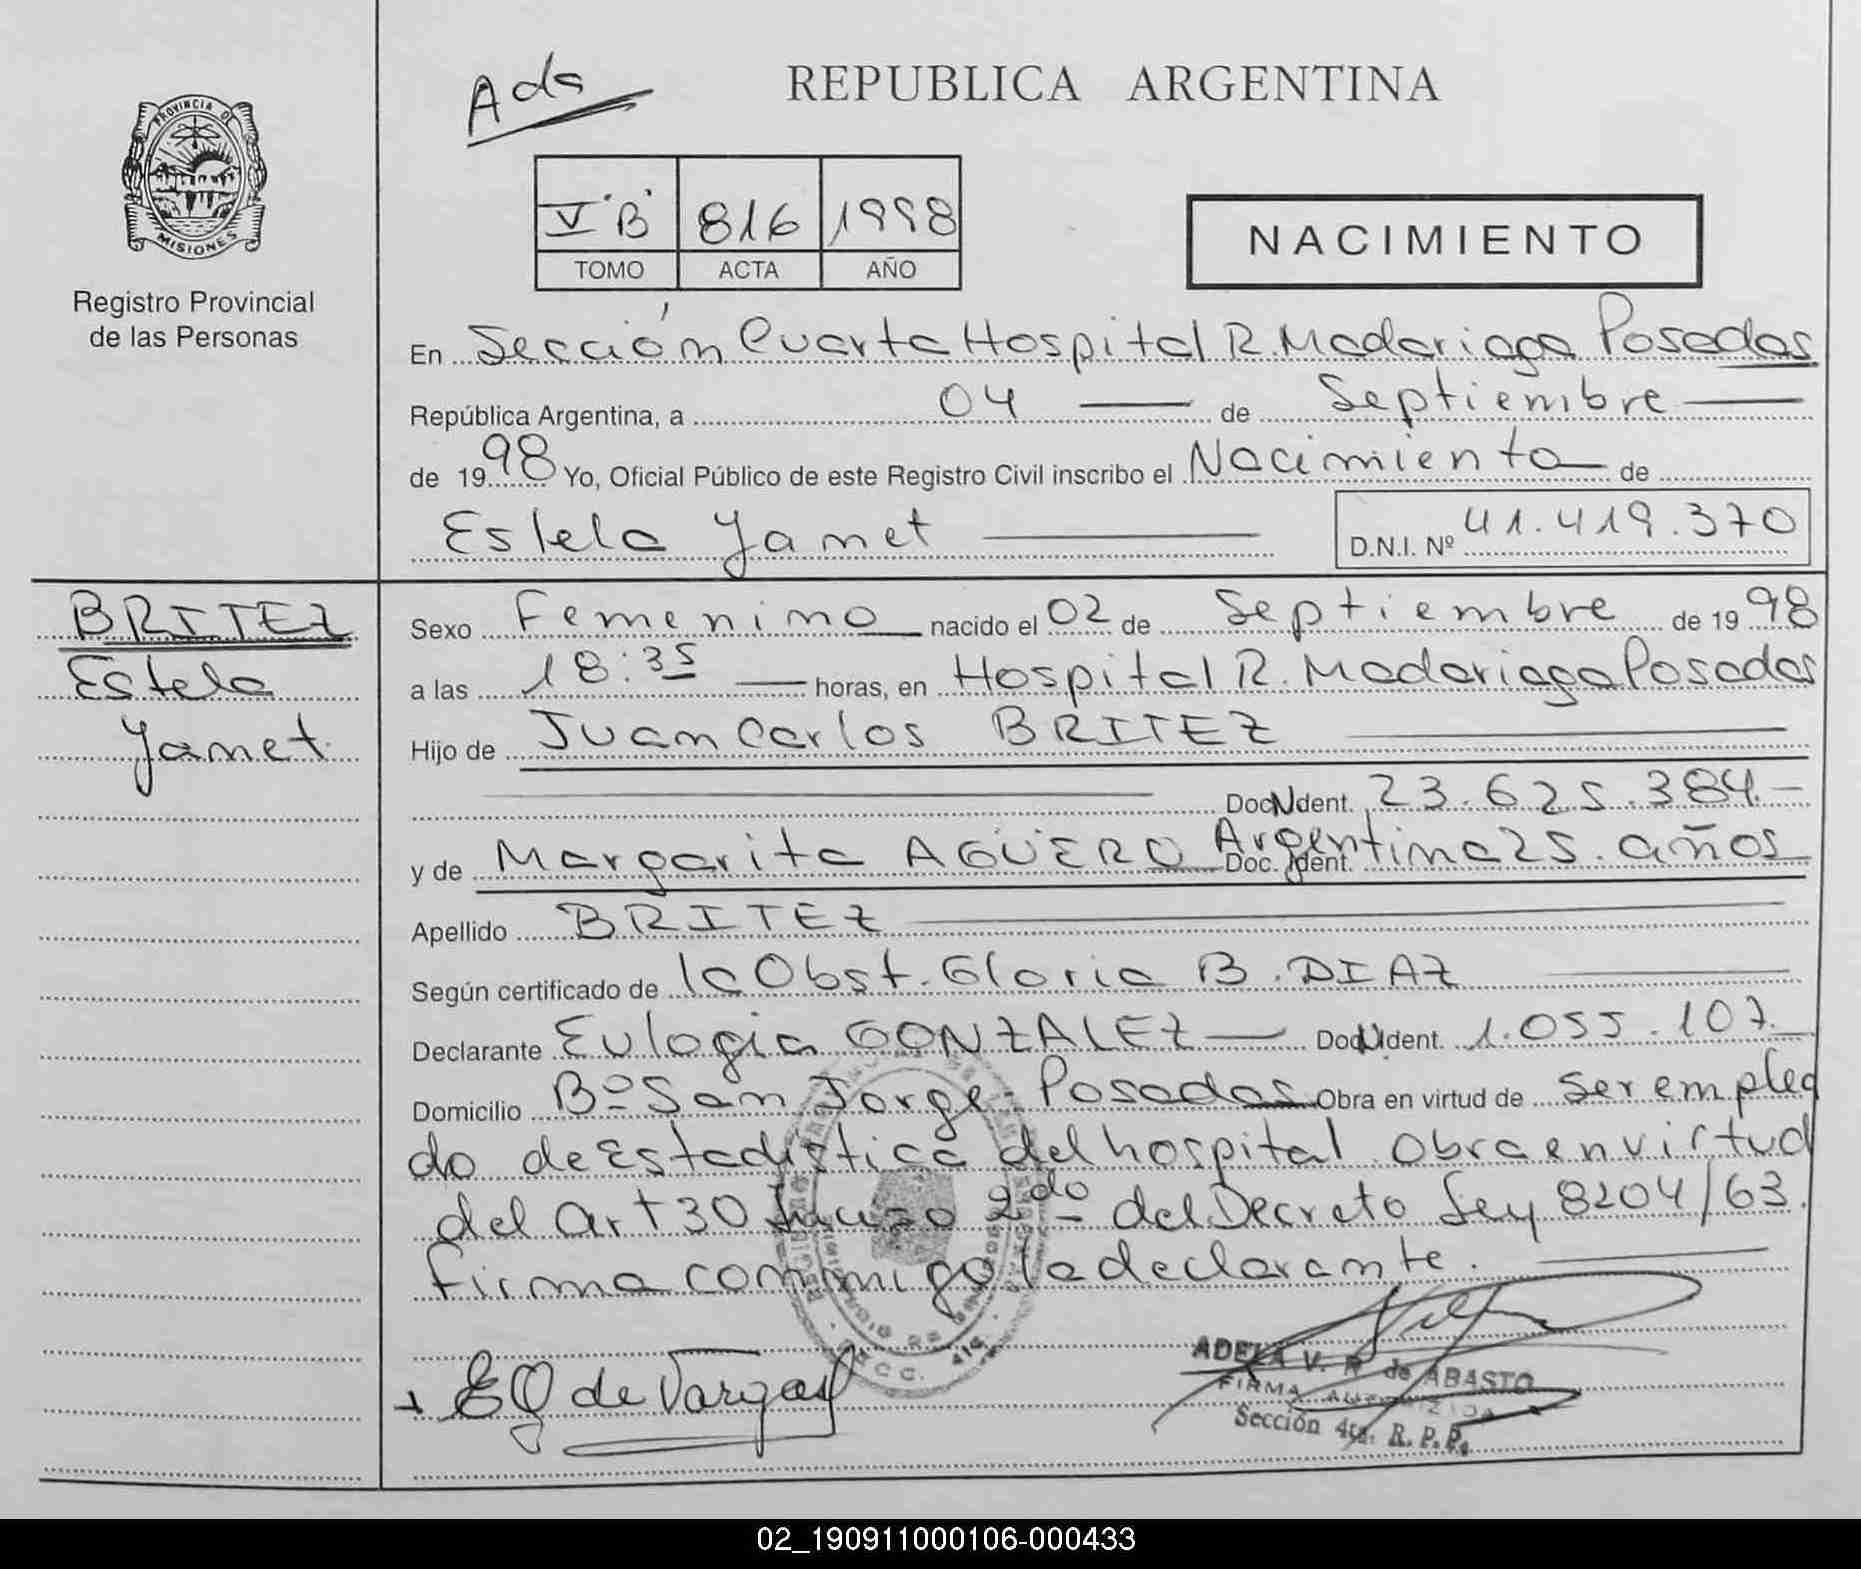 Ads
REPUBLICA ARGENTINA
PROVINCIA DE
MISIONES
Registro Provincial
de las Personas
V "B" 816 1998
TOMO ACTA AÑO
NACIMIENTO
En Sección Cuarta Hospital R. Madariaga Posadas
República Argentina, a 04 de Septiembre
de 1998 Yo, Oficial Público de este Registro Civil inscribo el Nacimiento de
Estela Yamet
D.N.I. Nº 41.419.370
BRITEZ
Estela
Yamet
Sexo Femenino nacido el 02 de Septiembre de 1998
a las 18:35 horas, en Hospital R. Madariaga Posadas
Hijo de Juan Carlos BRITEZ
Doc. Ident. 23.625.384.-
y de Margarita AGÜERO Doc. Ident. Argentina 25. años
Apellido BRITEZ
Según certificado de la Obst. Gloria B. DIAZ
Declarante Eulogia GONZALEZ Doc. Ident. 1.055.107.
Domicilio Bº San Jorge Posadas Obra en virtud de ser emplea
do de Estadistica del hospital Obra en virtud
del Art 30 Inciso 2do del Decreto Ley 8204/63.
Firma conmigo la declarante.
EG de Vargas
ADELA V. R. de ABASTO
FIRMA AUTORIZADA
Sección 4ta. R. P. P.
02_190911000106-000433